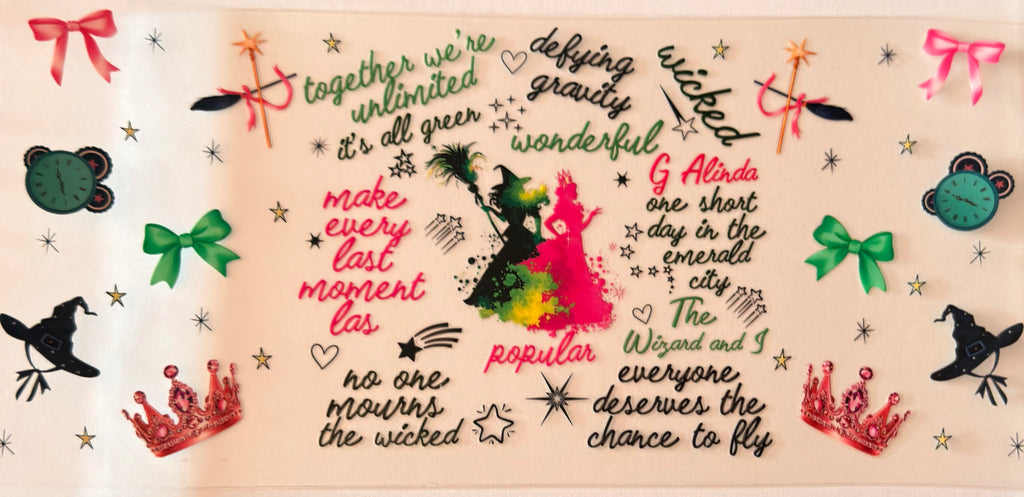 together we're
unlimited
it's all green
defying
gravity
wicked
wonderful
make
every
last
moment
las
G Alinda
one short
day in the
emerald
city
The
Wizard and I
popular
no one
mourns
the wicked
everyone
deserves the
chance to fly